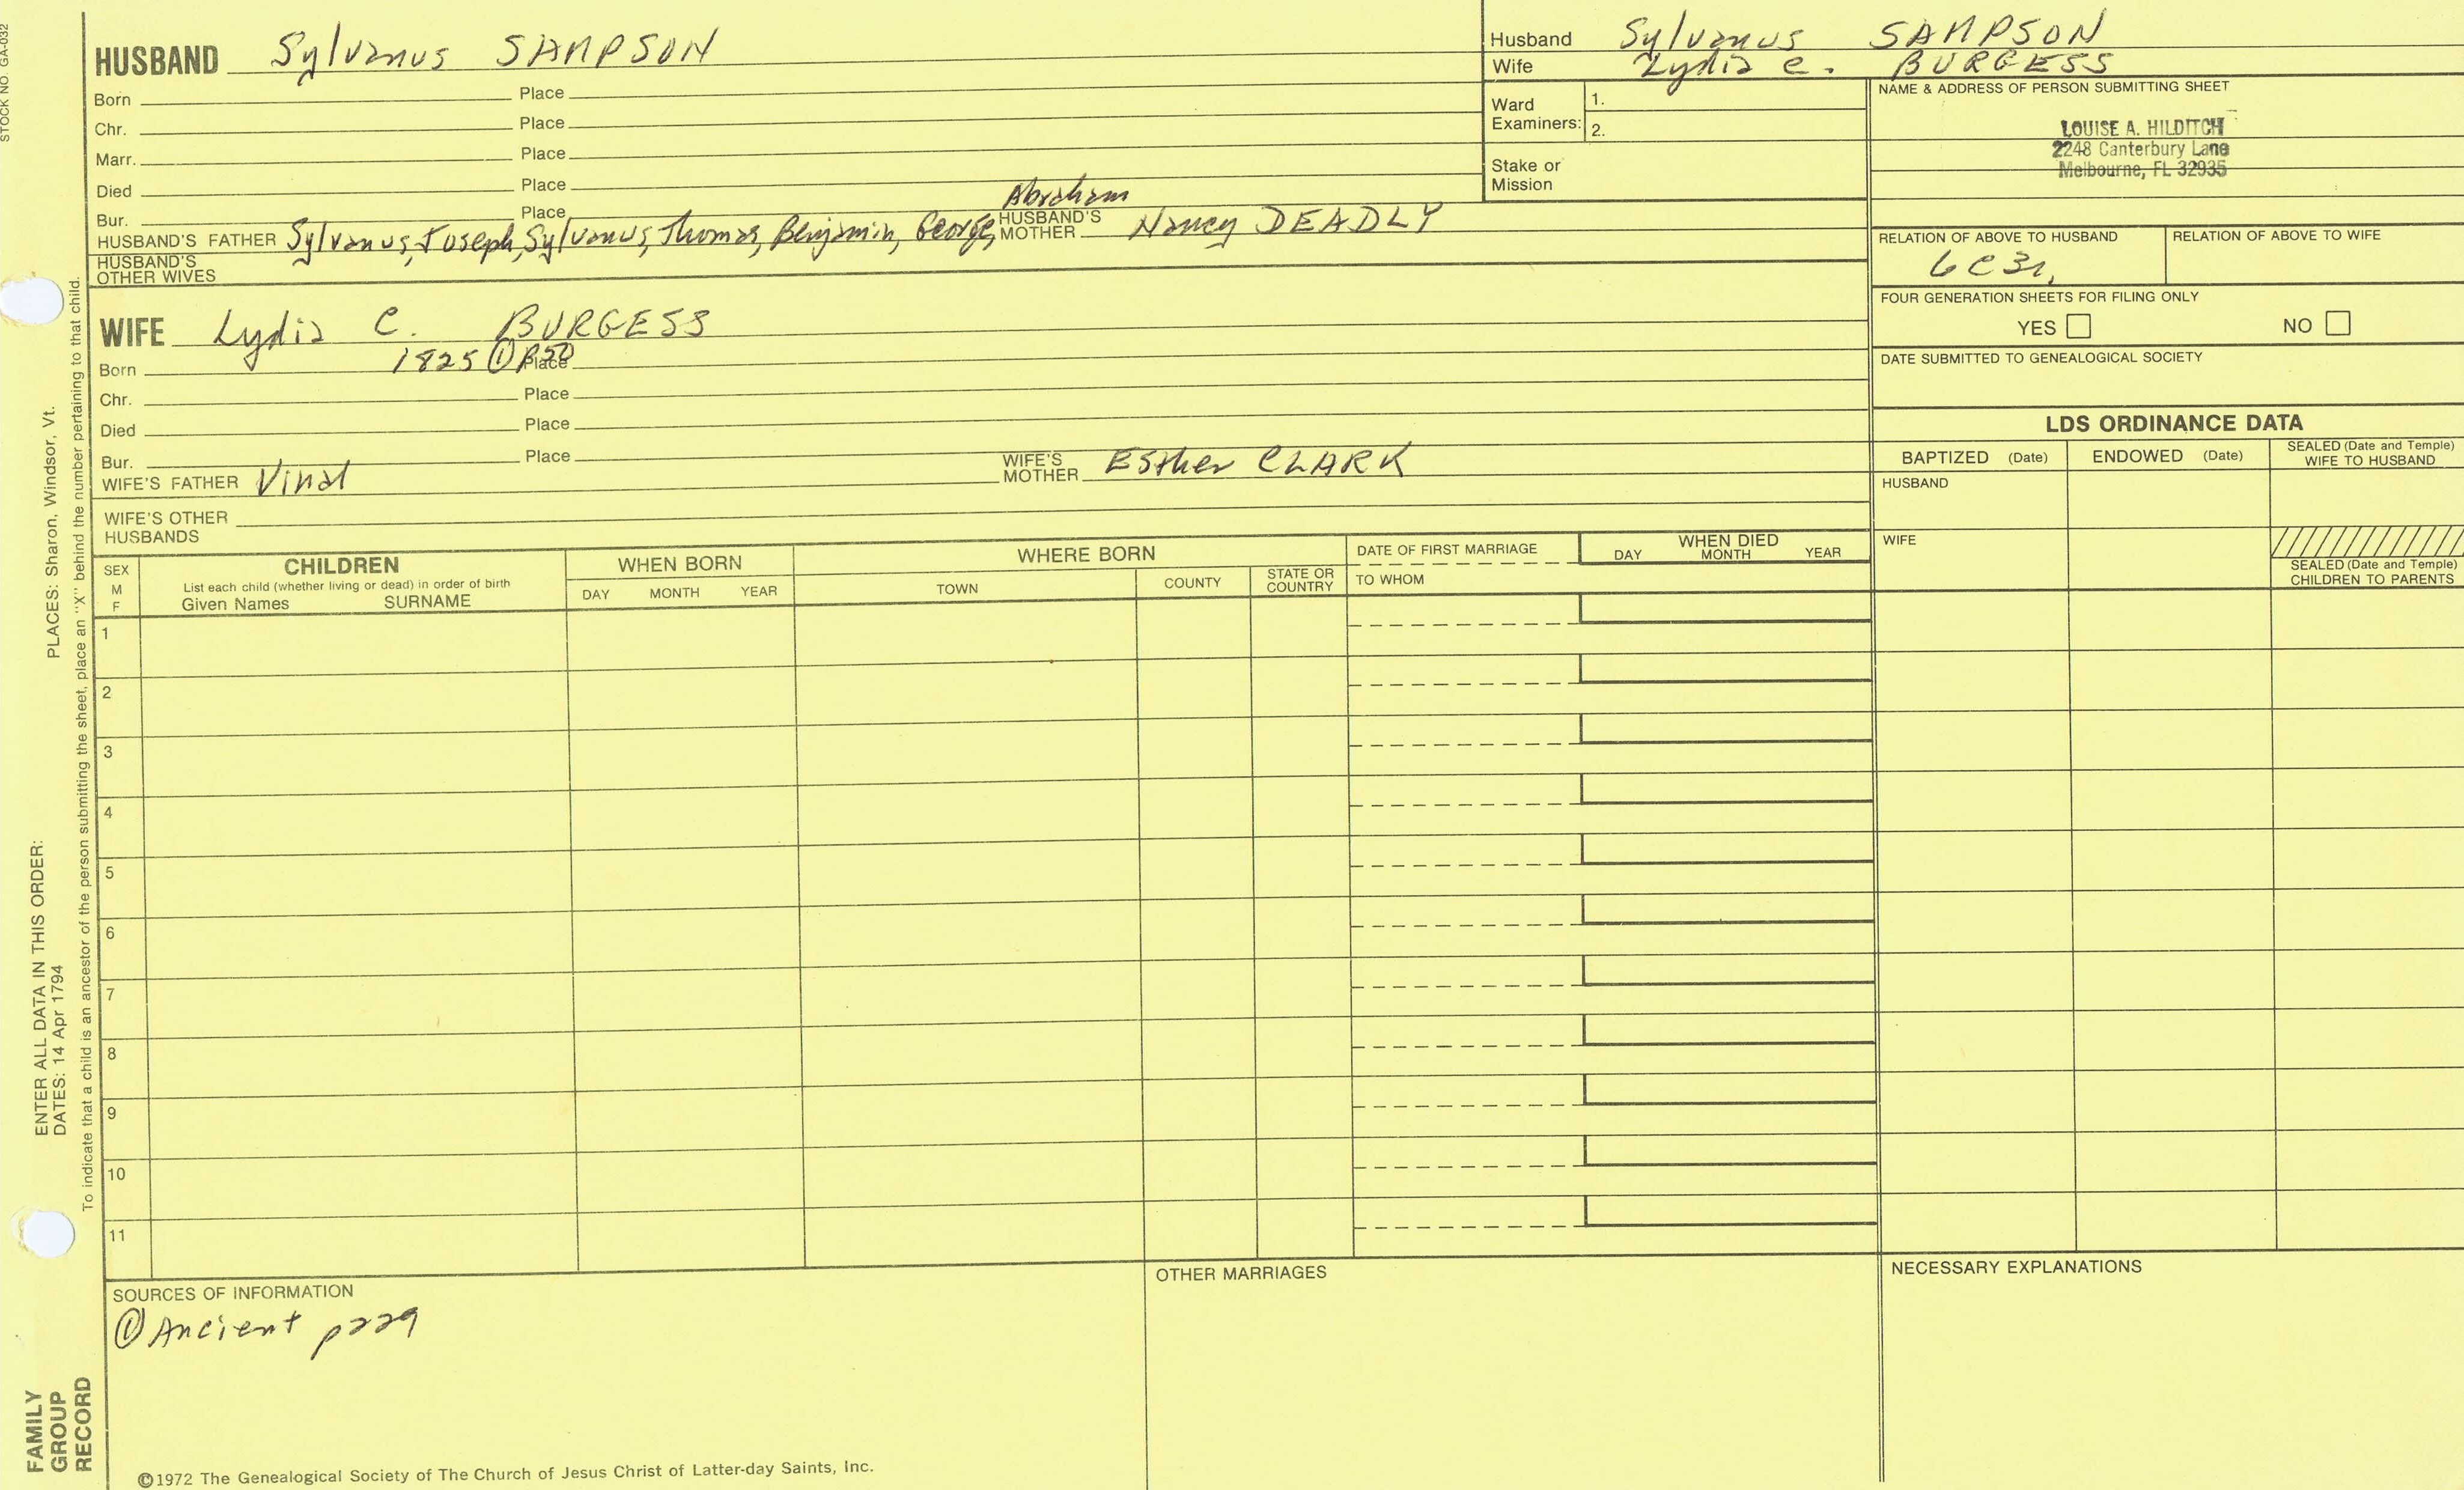 STOCK NO. GA-032
HUSBAND Sylvanus SAMPSON
Born Place
Chr. Place
Marr. Place
Died Place
Bur. Place
Abraham
HUSBAND'S FATHER Sylvanus, Joseph, Sylvanus, Thomas, Benjamin, George, HUSBAND'S MOTHER Nancy DEADLY
HUSBAND'S
OTHER WIVES
WIFE Lydia C. BURGESS
Born 1825 ① P50 Place
Chr. Place
Died Place
Bur. Place
WIFE'S FATHER Vinal WIFE'S MOTHER Esther CLARK
WIFE'S OTHER
HUSBANDS
Husband Sylvanus SAMPSON
Wife Lydia C. BURGESS
Ward
Examiners:
1.
2.
Stake or
Mission
NAME & ADDRESS OF PERSON SUBMITTING SHEET
LOUISE A. HILDITCH
2248 Canterbury Lane
Melbourne, FL 32935
RELATION OF ABOVE TO HUSBAND RELATION OF ABOVE TO WIFE
6C3r,
FOUR GENERATION SHEETS FOR FILING ONLY
YES NO
DATE SUBMITTED TO GENEALOGICAL SOCIETY
LDS ORDINANCE DATA
BAPTIZED (Date) ENDOWED (Date) SEALED (Date and Temple)
WIFE TO HUSBAND
HUSBAND
WIFE
SEALED (Date and Temple)
CHILDREN TO PARENTS
SEX
M
F
CHILDREN
List each child (whether living or dead) in order of birth
Given Names SURNAME
WHEN BORN
DAY MONTH YEAR
WHERE BORN
TOWN COUNTY STATE OR
COUNTRY
DATE OF FIRST MARRIAGE
TO WHOM
WHEN DIED
DAY MONTH YEAR
1
2
3
4
5
6
7
8
9
10
11
SOURCES OF INFORMATION
① Ancient p229
OTHER MARRIAGES
NECESSARY EXPLANATIONS
©1972 The Genealogical Society of The Church of Jesus Christ of Latter-day Saints, Inc.
FAMILY
GROUP
RECORD
ENTER ALL DATA IN THIS ORDER:
DATES: 14 Apr 1794
PLACES: Sharon, Windsor, Vt.
To indicate that a child is an ancestor of the person submitting the sheet, place an "X" behind the number pertaining to that child.